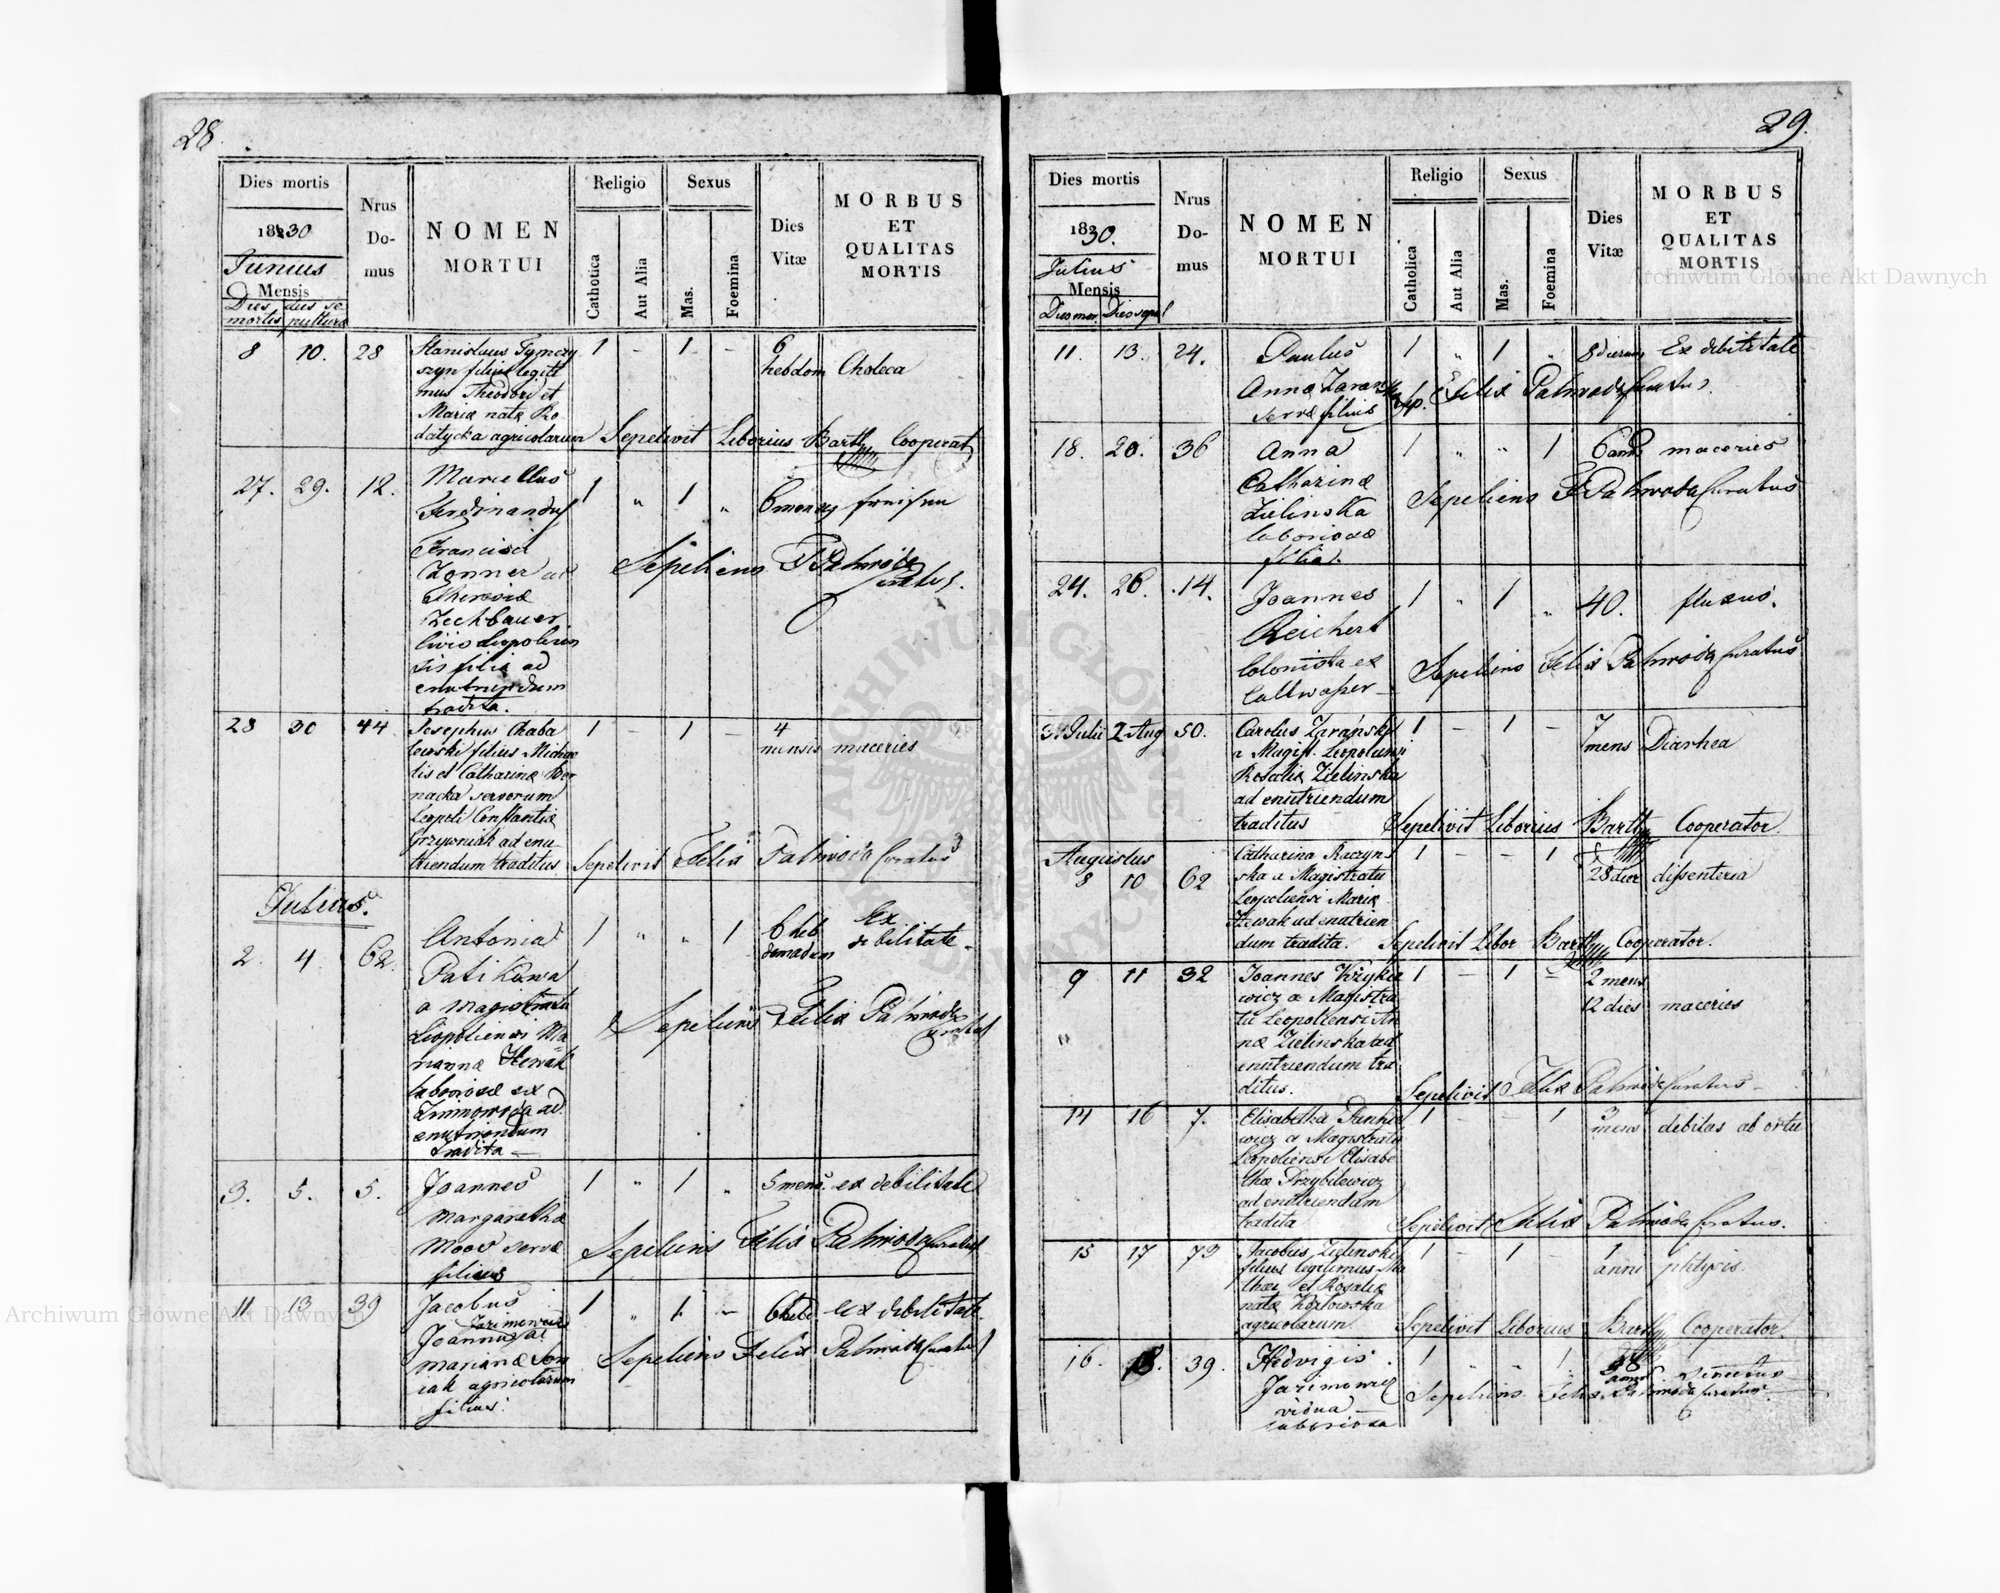 28
Dies mortis
1830
Junius
Mensis
Dies mortis
dies sepulturae
Nrus Domus
NOMEN
MORTUI
Religio
Catholica
Aut Alia
Sexus
Mas.
Foemina
Dies Vitæ
MORBUS
ET
QUALITAS
MORTIS
8 10. 28
Stanislaus
filius legiti
mus Theodori et
Mariæ natæ Ro
datycka agricolarum
1 – 1 –
6
hebdom
Sepelivit Liborius Cooperat
27. 29. 12.
Marcellus
Ferdinandus
Francisci
Zonner ac
Theresiæ
Zechbauer
ad
enutriendum
tradita.
1 " 1 "
6
Sepeliens F Palwoda
Curatus.
28 30 44
Josephus Chaba
lewski filius Michae
lis et Catharinæ
nacka servorum
Leopoli Constantiæ
ad enu
triendum traditus
1 – 1 –
4
mensis maceries
Sepelivit Felix Palwoda Curatus
Julius.
2. 4. 62.
Antonia
a Magistratu
Leopoliensi Ma
riannæ
laboriosæ ex
Zimnowoda ad
enutriendum
tradita –
1 " " 1
6 heb
domadum
Ex
debilitate –
Sepeliens Felix Palwoda
Curatus
3. 5. 5.
Joannes
Margarethæ
servæ
filius
1 " 1 "
5 mens. ex debilitate
Sepeliens Felix Palwoda Curatus
11 13 39
Jacobus
Jarimowicz
Joannis ac
Marianæ
agricolarum
filius.
1 " 1 –
6 hebd ex debilitate.
Sepeliens Felix Palwoda Curatus
29.
Dies mortis
1830.
Julius
Mensis
Dies mor.
Dies sepul
Nrus Domus
NOMEN
MORTUI
Religio
Catholica
Aut Alia
Sexus
Mas.
Foemina
Dies Vitæ
MORBUS
ET
QUALITAS
MORTIS
11. 13. 24.
Paulus
Anna
servæ filius
1 " 1 "
8 dierum Ex debilitate
Sep. Felix Palwoda Curatus.
18. 20. 36
Anna
Catharinæ
Zielinska
laboriosæ
filia.
1 " " 1
6 maceries
Sepeliens F Palwoda Curatus
24. 26. 14.
Joannes
Reichert
Colonista ex
1 " 1 "
40. fluxus.
Sepeliens Felix Palwoda Curatus
31 Julii 2 Aug 50.
Carolus Zaranski
a Magist. Leopoliensi
Rosaliæ Zielinska
ad enutriendum
traditus
1 – 1 –
7
mens Diarrhea
Sepelivit Liborius Cooperator.
Augustus
8 10 62
Catharina Raczyns
ska a Magistratu
Leopoliensi Mariæ
ad enutrien
dum tradita.
1 – – 1
28 dier dissenteria
Sepelivit Libor Cooperator.
9 11 32
Joannes
wicz a Magistra
tu Leopoliensi An
næ Zielinska ad
enutriendum tra
ditus.
1 – 1 –
2 mens
12 dies maceries
Sepelivit Felix Palwoda Curatus –
14 16 7.
Elisabetha
wicz a Magistratu
Leopoliensi Elisabe
thæ Przybilewicz
ad enutriendum
tradita
1 – – 1
3
mens debilitas ab ortu
Sepelivit Felix Palwoda Curatus.
15 17 79
Jacobus Zielinski
filius legitimus Ma
thæi et Rosaliæ
natæ Kozlowska
agricolarum.
1 – 1 –
1
anni phtysis.
Sepelivit Liborius Cooperator.
16. 18. 39.
Hedvigis
Jarimowicz
vidua –
laboriosa
1 " " 1
Sepeliens Felix Palwoda Curatus.
Archiwum Główne Akt Dawnych
Archiwum Główne Akt Dawnych
ARCHIWUM GŁÓWNE AKT DAWNYCH